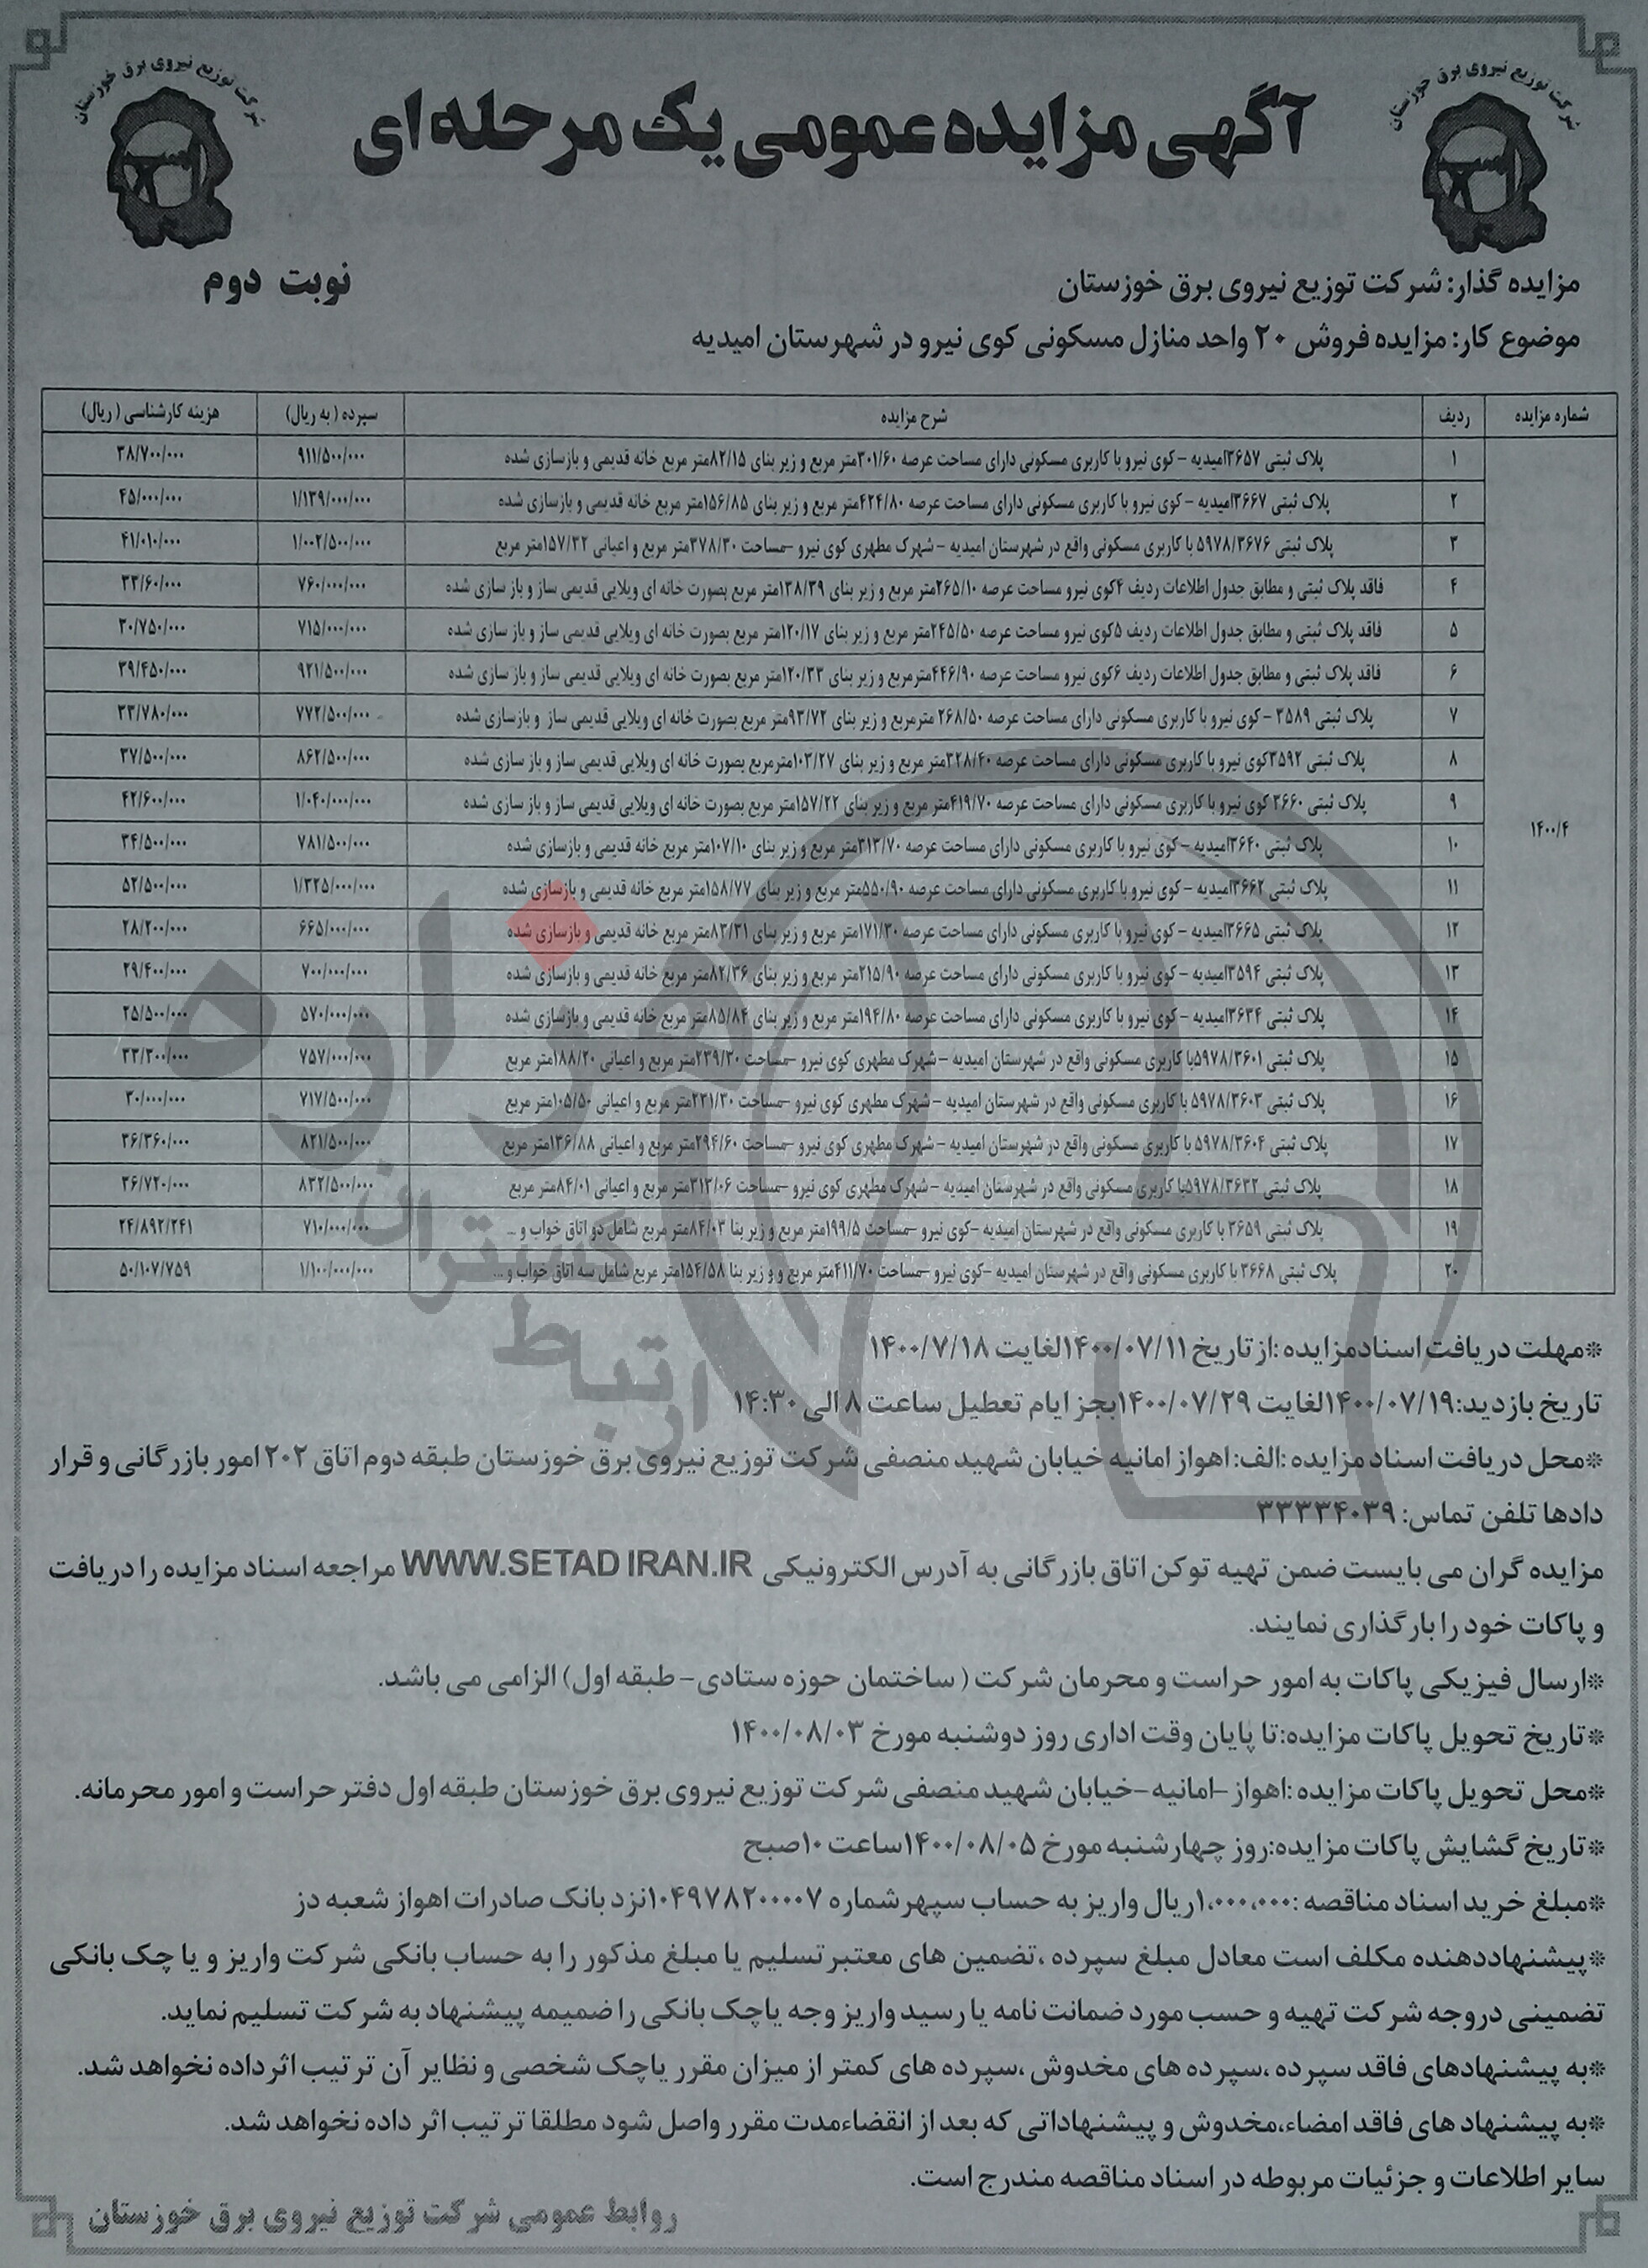 شرکت توزیع نیروی برق خوزستان
شرکت توزیع نیروی برق خوزستان
آگهی مزایده عمومی یک مرحله‌ای
مزایده گذار: شرکت توزیع نیروی برق خوزستان
نوبت دوم
موضوع کار: مزایده فروش ۲۰ واحد منازل مسکونی کوی نیرو در شهرستان امیدیه
شماره مزایده ردیف شرح مزایده سپرده ( به ریال) هزینه کارشناسی ( ریال)
۱۴۰۰/۴
۱ پلاک ثبتی ۳۶۵۷امیدیه - کوی نیرو با کاربری مسکونی دارای مساحت عرصه ۳۰۱/۶۰متر مربع و زیر بنای ۸۲/۱۵متر مربع خانه قدیمی و بازسازی شده ۹۱۱/۵۰۰/۰۰۰ ۳۸/۷۰۰/۰۰۰
۲ پلاک ثبتی ۳۶۶۷امیدیه - کوی نیرو با کاربری مسکونی دارای مساحت عرصه ۴۲۴/۸۰متر مربع و زیر بنای ۱۵۶/۸۵متر مربع خانه قدیمی و بازسازی شده ۱/۱۳۹/۰۰۰/۰۰۰ ۴۵/۰۰۰/۰۰۰
۳ پلاک ثبتی ۵۹۷۸/۳۶۷۶ با کاربری مسکونی واقع در شهرستان امیدیه - شهرک مطهری کوی نیرو -مساحت ۳۷۸/۳۰متر مربع و اعیانی ۱۵۷/۳۲متر مربع ۱/۰۰۲/۵۰۰/۰۰۰ ۴۱/۰۱۰/۰۰۰
۴ فاقد پلاک ثبتی و مطابق جدول اطلاعات ردیف ۴کوی نیرو مساحت عرصه ۲۶۵/۱۰متر مربع و زیر بنای ۱۳۸/۳۹متر مربع بصورت خانه ای ویلایی قدیمی ساز و باز سازی شده ۷۶۰/۰۰۰/۰۰۰ ۳۳/۶۰۰/۰۰۰
۵ فاقد پلاک ثبتی و مطابق جدول اطلاعات ردیف ۵کوی نیرو مساحت عرصه ۲۴۵/۵۰متر مربع و زیر بنای ۱۲۰/۱۷متر مربع بصورت خانه ای ویلایی قدیمی ساز و باز سازی شده ۷۱۵/۰۰۰/۰۰۰ ۳۰/۷۵۰/۰۰۰
۶ فاقد پلاک ثبتی و مطابق جدول اطلاعات ردیف ۶کوی نیرو مساحت عرصه ۴۴۶/۹۰مترمربع و زیر بنای ۱۲۰/۳۳متر مربع بصورت خانه ای ویلایی قدیمی ساز و باز سازی شده ۹۲۱/۵۰۰/۰۰۰ ۳۹/۴۵۰/۰۰۰
۷ پلاک ثبتی ۳۵۸۹ - کوی نیرو با کاربری مسکونی دارای مساحت عرصه ۲۶۸/۵۰ مترمربع و زیر بنای ۹۳/۷۲متر مربع بصورت خانه ای ویلایی قدیمی ساز و بازسازی شده ۷۷۲/۵۰۰/۰۰۰ ۳۳/۷۸۰/۰۰۰
۸ پلاک ثبتی ۳۵۹۲کوی نیرو با کاربری مسکونی دارای مساحت عرصه ۳۲۸/۴۰متر مربع و زیر بنای ۱۰۳/۲۷مترمربع بصورت خانه ای ویلایی قدیمی ساز و باز سازی شده ۸۶۲/۵۰۰/۰۰۰ ۳۷/۵۰۰/۰۰۰
۹ پلاک ثبتی ۳۶۶۰ کوی نیرو با کاربری مسکونی دارای مساحت عرصه ۴۱۹/۷۰متر مربع و زیر بنای ۱۵۷/۲۲متر مربع بصورت خانه ای ویلایی قدیمی ساز و باز سازی شده ۱/۰۴۰/۰۰۰/۰۰۰ ۴۲/۶۰۰/۰۰۰
۱۰ پلاک ثبتی ۳۶۴۰امیدیه - کوی نیرو با کاربری مسکونی دارای مساحت عرصه ۳۱۳/۷۰متر مربع و زیر بنای ۱۰۷/۱۰متر مربع خانه قدیمی و بازسازی شده ۷۸۱/۵۰۰/۰۰۰ ۳۴/۵۰۰/۰۰۰
۱۱ پلاک ثبتی ۳۶۶۲امیدیه - کوی نیرو با کاربری مسکونی دارای مساحت عرصه ۵۵۰/۹۰متر مربع و زیر بنای ۱۵۸/۷۷متر مربع خانه قدیمی و بازسازی شده ۱/۳۲۵/۰۰۰/۰۰۰ ۵۲/۵۰۰/۰۰۰
۱۲ پلاک ثبتی ۳۶۶۵امیدیه - کوی نیرو با کاربری مسکونی دارای مساحت عرصه ۱۷۱/۳۰متر مربع و زیر بنای ۸۳/۳۱متر مربع خانه قدیمی و بازسازی شده ۶۶۵/۰۰۰/۰۰۰ ۲۸/۲۰۰/۰۰۰
۱۳ پلاک ثبتی ۳۵۹۴امیدیه - کوی نیرو با کاربری مسکونی دارای مساحت عرصه ۲۱۵/۹۰متر مربع و زیر بنای ۸۲/۳۶متر مربع خانه قدیمی و بازسازی شده ۷۰۰/۰۰۰/۰۰۰ ۲۹/۴۰۰/۰۰۰
۱۴ پلاک ثبتی ۳۶۳۴امیدیه - کوی نیرو با کاربری مسکونی دارای مساحت عرصه ۱۹۴/۸۰متر مربع و زیر بنای ۸۵/۸۴متر مربع خانه قدیمی و بازسازی شده ۵۷۰/۰۰۰/۰۰۰ ۲۵/۵۰۰/۰۰۰
۱۵ پلاک ثبتی ۵۹۷۸/۳۶۰۱با کاربری مسکونی واقع در شهرستان امیدیه - شهرک مطهری کوی نیرو -مساحت ۲۳۹/۲۰متر مربع و اعیانی ۱۸۸/۲۰متر مربع ۷۵۷/۰۰۰/۰۰۰ ۳۳/۳۰۰/۰۰۰
۱۶ پلاک ثبتی ۵۹۷۸/۳۶۰۳ با کاربری مسکونی واقع در شهرستان امیدیه - شهرک مطهری کوی نیرو -مساحت ۲۳۱/۳۰متر مربع و اعیانی ۱۰۵/۵۰متر مربع ۷۱۷/۵۰۰/۰۰۰ ۳۰/۰۰۰/۰۰۰
۱۷ پلاک ثبتی ۵۹۷۸/۳۶۰۴ با کاربری مسکونی واقع در شهرستان امیدیه - شهرک مطهری کوی نیرو -مساحت ۲۹۴/۶۰متر مربع و اعیانی ۱۳۶/۸۸متر مربع ۸۲۱/۵۰۰/۰۰۰ ۳۶/۳۶۰/۰۰۰
۱۸ پلاک ثبتی ۵۹۷۸/۳۶۳۲با کاربری مسکونی واقع در شهرستان امیدیه - شهرک مطهری کوی نیرو -مساحت ۳۱۳/۰۶متر مربع و اعیانی ۸۴/۰۱متر مربع ۸۳۲/۵۰۰/۰۰۰ ۳۶/۷۲۰/۰۰۰
۱۹ پلاک ثبتی ۳۶۵۹ با کاربری مسکونی واقع در شهرستان امیدیه -کوی نیرو -مساحت ۱۹۹/۵متر مربع و زیر بنا ۸۴/۰۳متر مربع شامل دو اتاق خواب و ... ۷۱۰/۰۰۰/۰۰۰ ۲۴/۸۹۲/۲۴۱
۲۰ پلاک ثبتی ۳۶۶۸ با کاربری مسکونی واقع در شهرستان امیدیه -کوی نیرو -مساحت ۴۱۱/۷۰متر مربع و و زیر بنا ۱۵۴/۵۸متر مربع شامل سه اتاق خواب و ... ۱/۱۰۰/۰۰۰/۰۰۰ ۵۰/۱۰۷/۷۵۹
*مهلت دریافت اسنادمزایده :از تاریخ ۱۴۰۰/۰۷/۱۱لغایت ۱۴۰۰/۷/۱۸
تاریخ بازدید:۱۴۰۰/۰۷/۱۹لغایت ۱۴۰۰/۰۷/۲۹بجز ایام تعطیل ساعت ۸ الی ۱۴:۳۰
*محل دریافت اسناد مزایده :الف: اهواز امانیه خیابان شهید منصفی شرکت توزیع نیروی برق خوزستان طبقه دوم اتاق ۲۰۲ امور بازرگانی و قرار
دادها تلفن تماس: ۳۳۳۳۴۰۳۹
مزایده گران می بایست ضمن تهیه توکن اتاق بازرگانی به آدرس الکترونیکی WWW.SETAD IRAN.IR مراجعه اسناد مزایده را دریافت
و پاکات خود را بارگذاری نمایند.
*ارسال فیزیکی پاکات به امور حراست و محرمان شرکت ( ساختمان حوزه ستادی- طبقه اول) الزامی می باشد.
*تاریخ تحویل پاکات مزایده:تا پایان وقت اداری روز دوشنبه مورخ ۱۴۰۰/۰۸/۰۳
*محل تحویل پاکات مزایده :اهواز -امانیه -خیابان شهید منصفی شرکت توزیع نیروی برق خوزستان طبقه اول دفتر حراست و امور محرمانه.
*تاریخ گشایش پاکات مزایده:روز چهارشنبه مورخ ۱۴۰۰/۰۸/۰۵ساعت ۱۰صبح
*مبلغ خرید اسناد مناقصه :۱،۰۰۰،۰۰۰ریال واریز به حساب سپهرشماره ۱۰۴۹۷۸۲۰۰۰۰۷نزد بانک صادرات اهواز شعبه دز
*پیشنهاددهنده مکلف است معادل مبلغ سپرده ،تضمین های معتبر تسلیم یا مبلغ مذکور را به حساب بانکی شرکت واریز و یا چک بانکی
تضمینی دروجه شرکت تهیه و حسب مورد ضمانت نامه یا رسید واریز وجه یاچک بانکی را ضمیمه پیشنهاد به شرکت تسلیم نماید.
*به پیشنهادهای فاقد سپرده ،سپرده های مخدوش ،سپرده های کمتر از میزان مقرر یاچک شخصی و نظایر آن ترتیب اثرداده نخواهد شد.
*به پیشنهاد های فاقد امضاء،مخدوش و پیشنهاداتی که بعد از انقضاءمدت مقرر واصل شود مطلقا ترتیب اثر داده نخواهد شد.
سایر اطلاعات و جزئیات مربوطه در اسناد مناقصه مندرج است.
روابط عمومی شرکت توزیع نیروی برق خوزستان
هزاره
ارتباط گستران